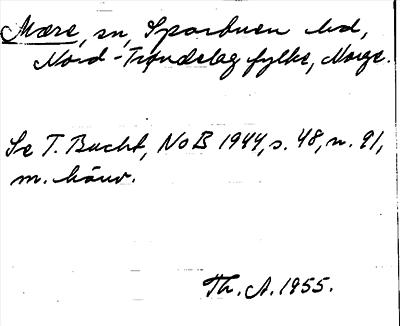 Mære, sn, Sparbuen hd,
Nord-Trøndelag fylke, Norge.
Se T. Bucht, NoB 1944, s. 48, n. 91,
m. hänv.
Th. A. 1955.